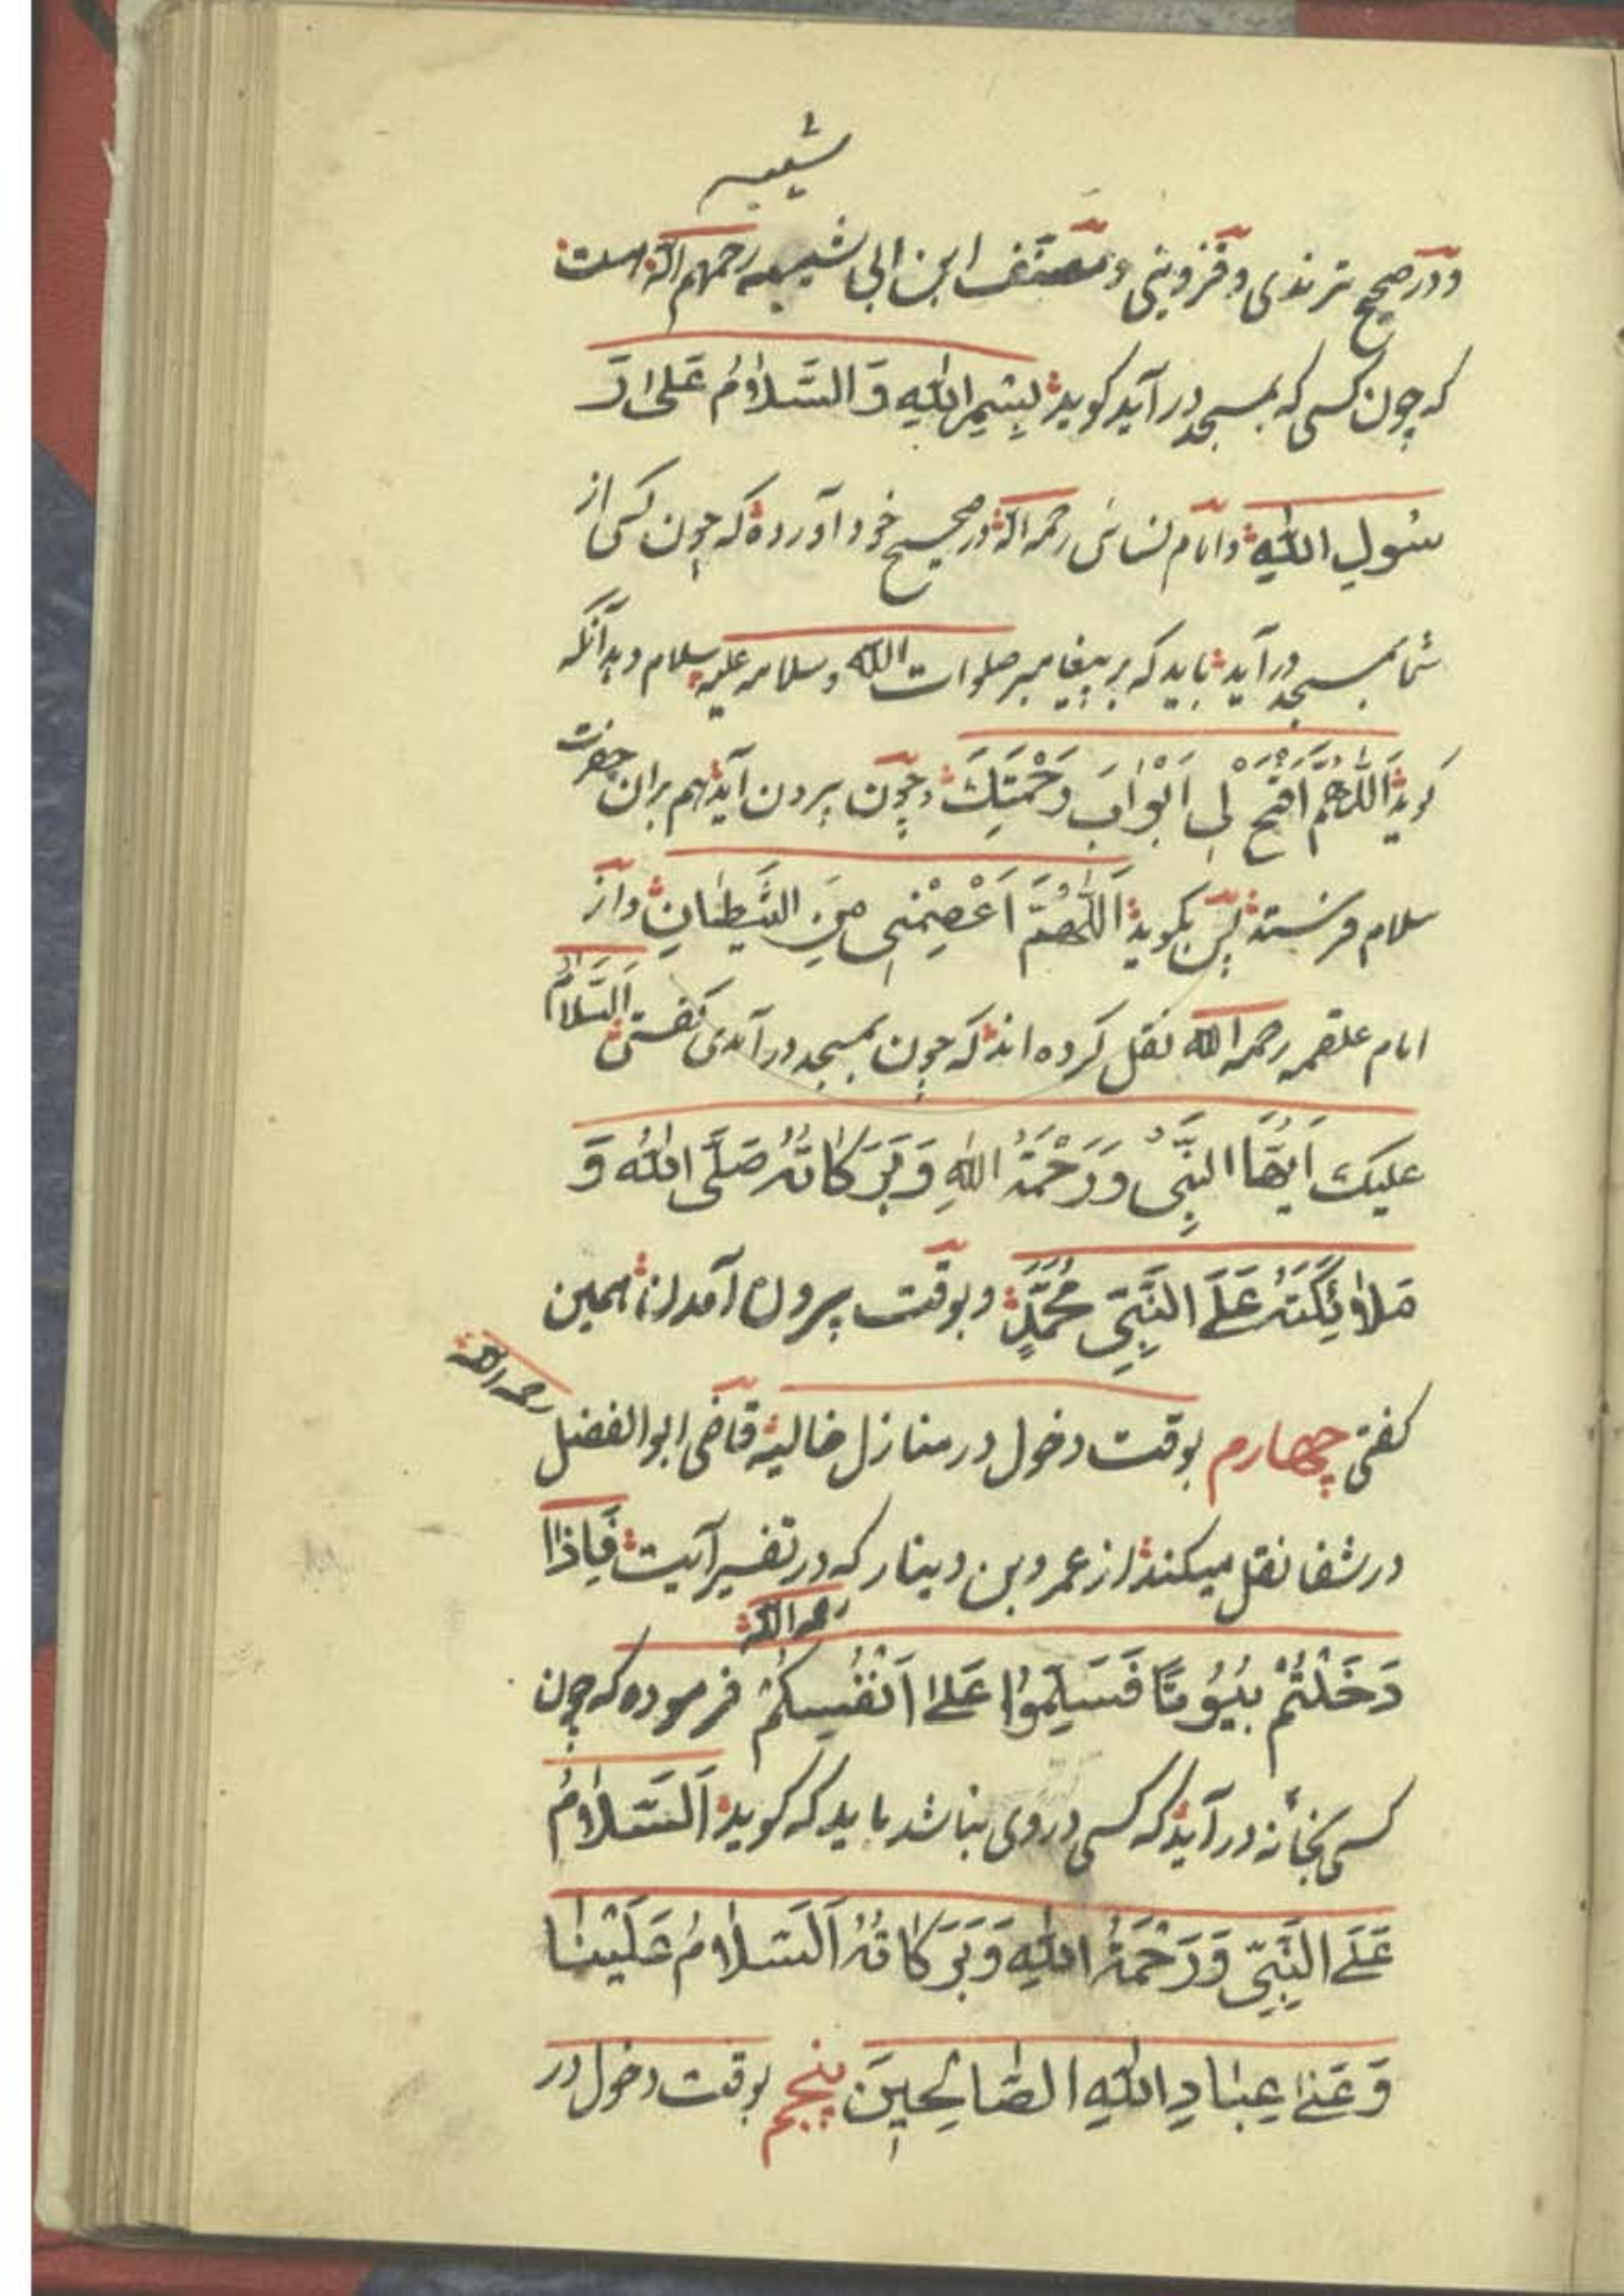 شیبه
و در صحیح ترمذی و قزوینی و مصنف ابن ابی شیبه رحمهم الله است
که چون کسی که بمسجد در آید کوید بِسْمِ اللهِ وَ السَّلَامُ عَلَی رَ
سُولِ اللهِ و امام نسائی رحمه الله در صحیح خود آورده که چون کسی از
شما بمسجد در آید باید که بر پیغامبر صلوات الله و سلامه علیه سلام دهد آنکه
کوید اَللّٰهُمَّ افْتَحْ لِی اَبْوَابَ رَحْمَتِكَ و چون بیرون آید هم بران حضرت
سلام فرستد پس بکوید اَللّٰهُمَّ اَعْصِمْنِی مِنَ الشَّیْطَانِ و از
امام علقمه رحمه الله نقل کرده اند که چون بمسجد در آمدی کفتی اَلسَّلَامُ
علیك اَیُّهَا النَّبِیُّ وَ رَحْمَةُ اللهِ وَ بَرَکَاتُهُ صَلَّی اللهُ وَ
مَلَائِکَتُهُ عَلَی النَّبِیِّ مُحَمَّدٍ و بوقت بیرون آمدن همین
کفتی چهارم بوقت دخول در منازل خالیه قاضی ابو الفضل رحمه الله
در شفا نقل میکند از عمرو بن دینار که در تفسیر آیت فَاِذَا
رحمه الله
دَخَلْتُمْ بُیُوتًا فَسَلِّمُوا عَلَی اَنْفُسِکُمْ فرموده که چون
کسی بخانه در آید که کسی در وی نباشد باید که کوید اَلسَّلَامُ
عَلَی النَّبِیِّ وَ رَحْمَةُ اللهِ وَ بَرَکَاتُهُ اَلسَّلَامُ عَلَیْنَا
وَ عَلَی عِبَادِ اللهِ الصَّالِحِینَ پنجم بوقت دخول در